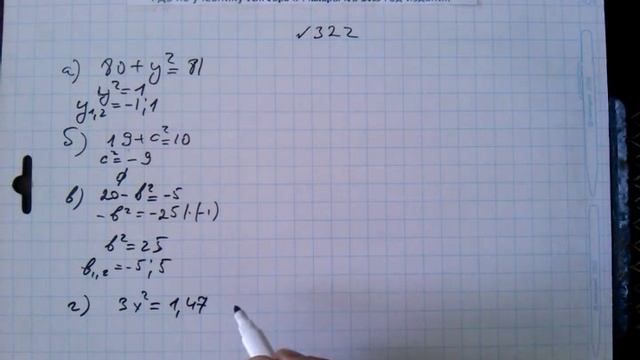 √322
а) 80 + y² = 81
y² = 1
y₁,₂ = -1; 1
б) 19 + c² = 10
c² = -9
∅
в) 20 - b² = -5
-b² = -25 | · (-1)
b² = 25
b₁,₂ = -5; 5
г) 3x² = 1,47